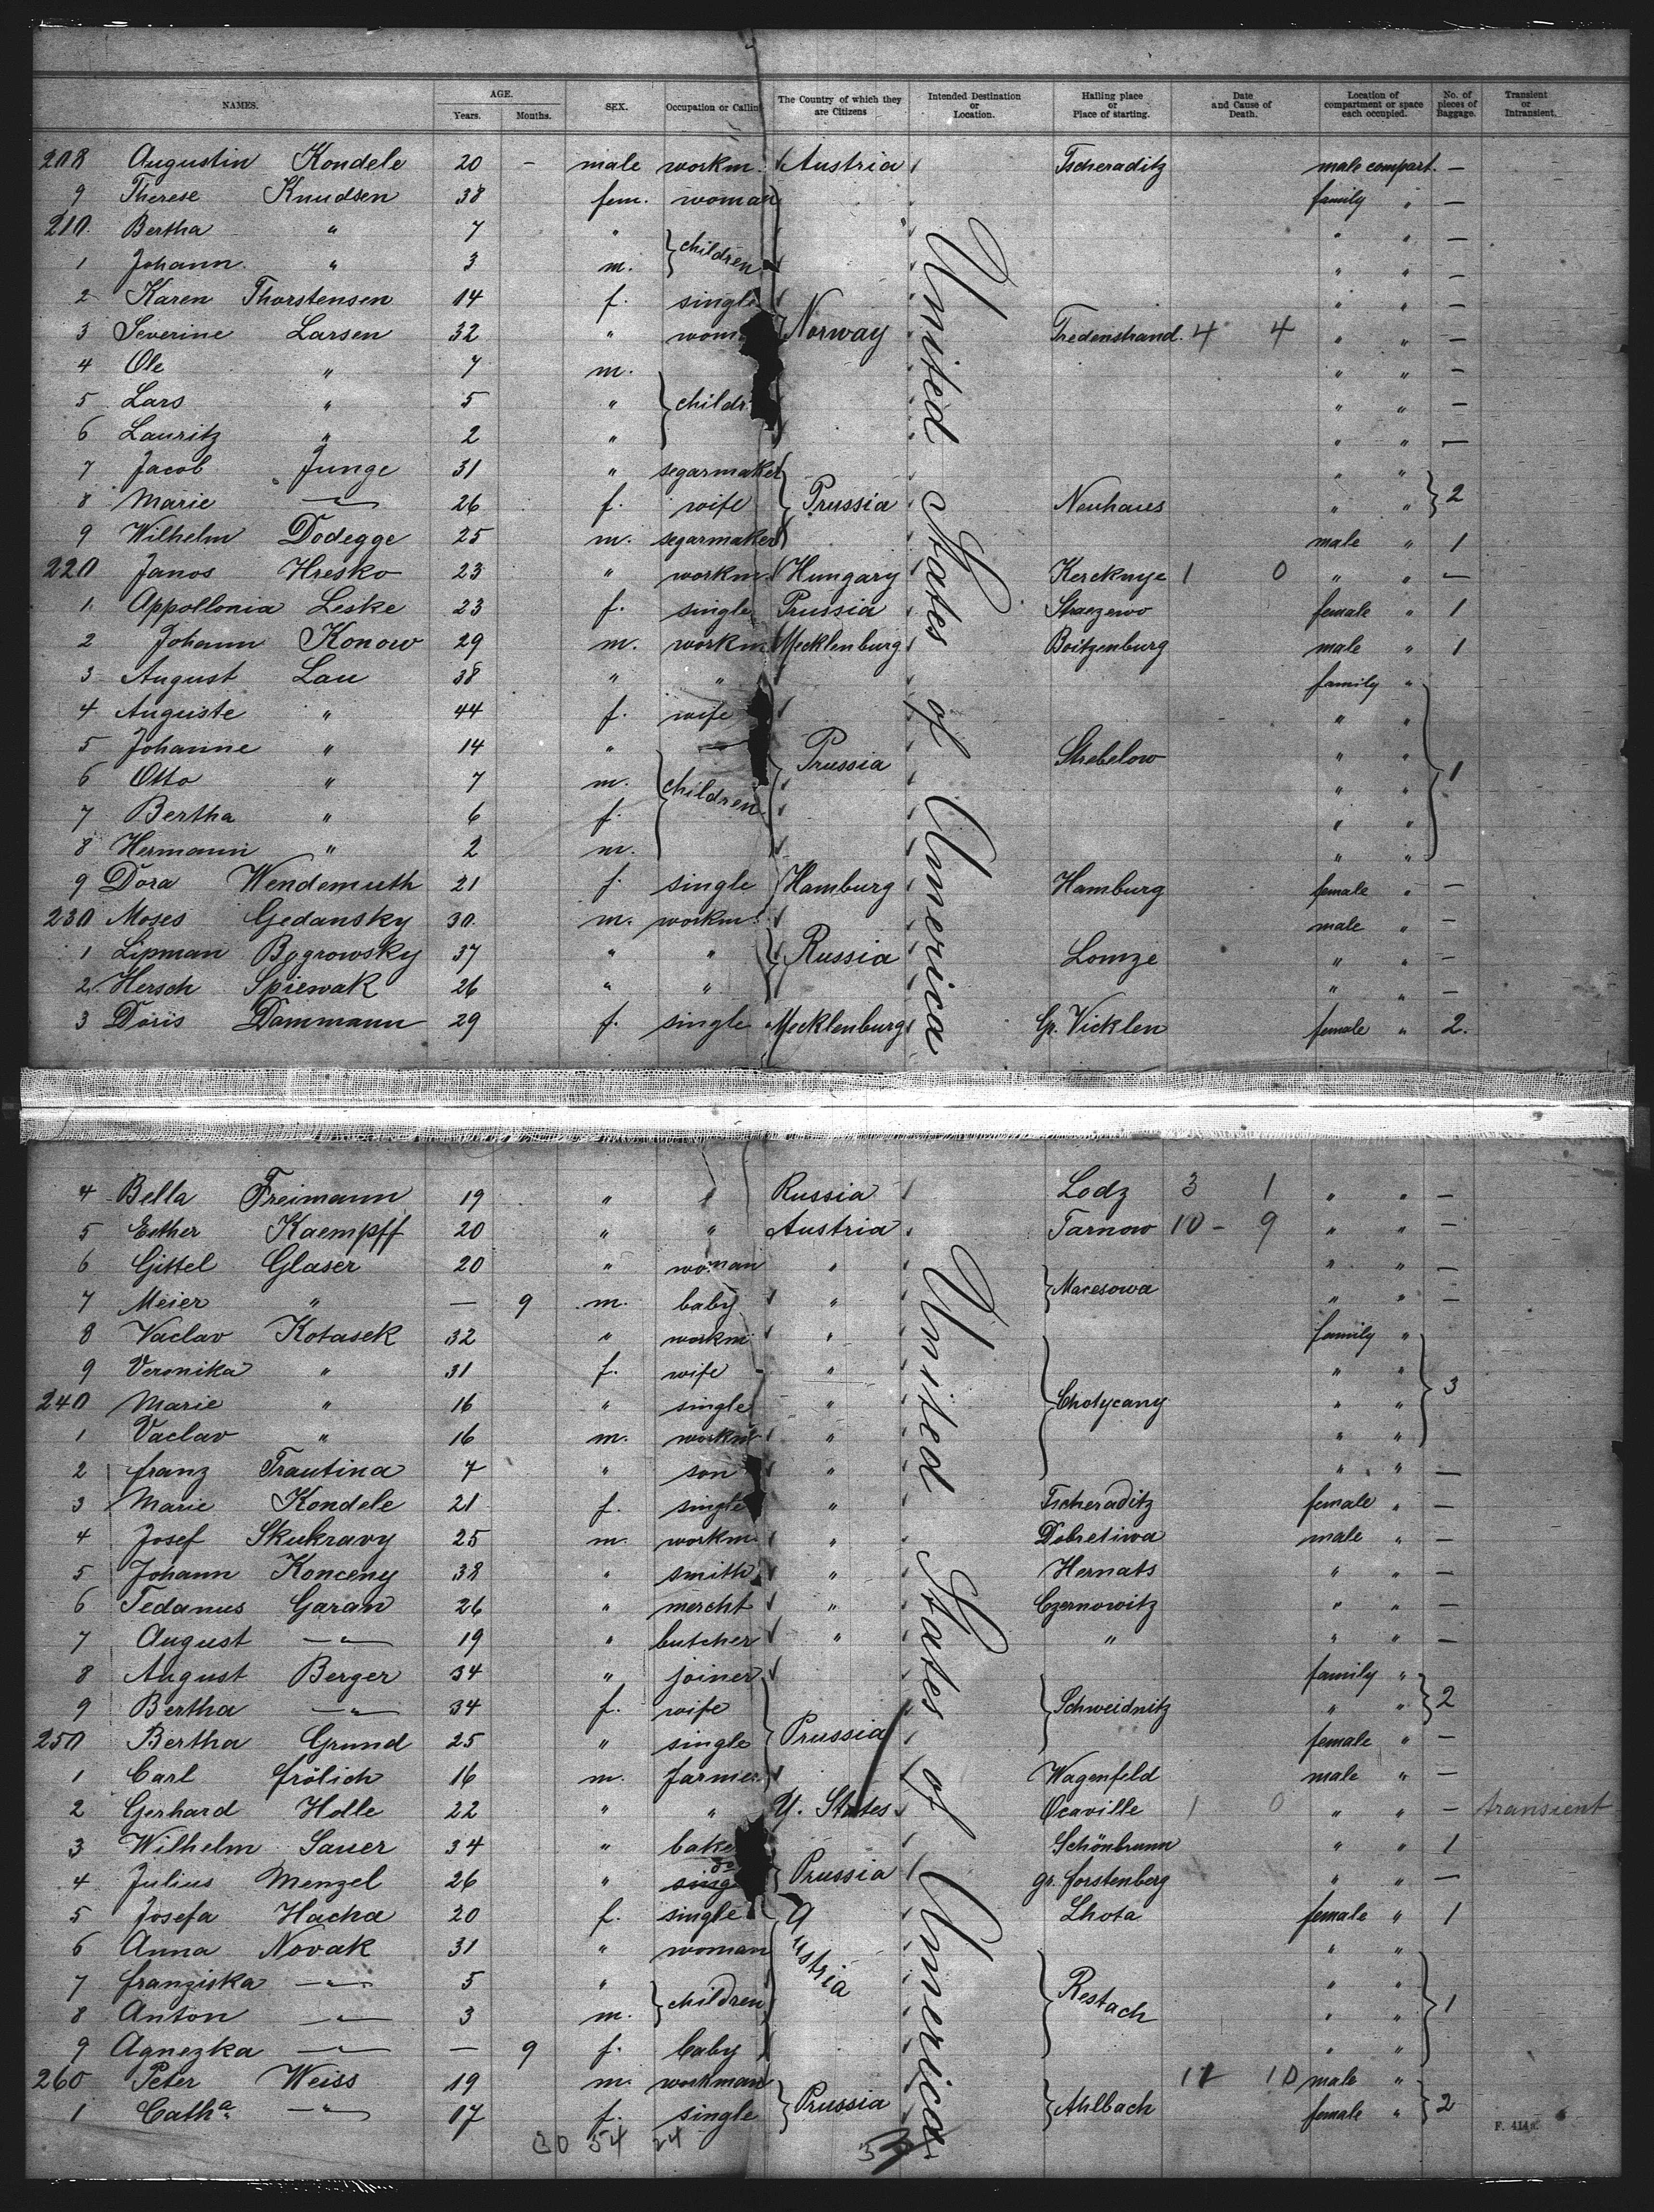 NAMES. AGE. SEX. Occupation or Calling The Country of which they are Citizens Intended Destination or Location. Hailing place or Place of starting. Date and Cause of Death. Location of compartment or space each occupied. No. of pieces of Baggage. Transient or Intransient.
Years. Months.
208 Augustin Kondele 20 – male workm. Austria Tscheraditz male compart. —
9 Therese Knudsen 38 fem. woman family " —
210. Bertha " 7 " children " " —
1 Johann " 3 m. " " —
2 Karen Thorstensen 14 f. single " " —
3 Severine Larsen 32 " Norway Tredenstrand. 4 4 " " —
4 Ole " 7 m. " " —
5 Lars " 5 " " " —
6 Lauritz " 2 " " " —
7 Jacob Junge 31 " segarmaker " "
8 Marie —"— 26 f. wife Prussia Neuhaus " " 2
9 Wilhelm Dodegge 25 m. segarmaker male " 1
220 Janos Hresko 23 " workm. Hungary Kercknye 1 0 " " —
1. Appollonia Leske 23 f. single Prussia Straezewo female " 1
2 Johann Konow 29 m. workm Mecklenburg Boitzenburg male " 1
3 August Lau 38 " " family "
4 Auguste " 44 f. wife " "
5 Johanne " 14 " — Prussia Strebelow " " 1
6 Otto " 7 m. children " "
7 Bertha " 6 f. " "
8 Hermann " 2 m. " "
9 Dora Wendemuth 21 f. single Hamburg Hamburg female " —
230 Moses Gedansky 30. m. workm. male " —
1 Lipman Bogrowsky 37 " " Russia Lomze " " —
2. Hersch Spiewak 26 " " " " —
3 Doris Dammann 29 f. single Mecklenburg Gr. Vicklen female " 2.
United States of America
4 Bella Freimann 19 " " Russia Lodz 3 1 " " —
5 Esther Kaempff 20 " " Austria Tarnow 10 – 9 " " —
6 Gittel Glaser 20 " woman " Maresowa " " —
7 Meier " — 9 m. baby " " " —
8 Vaclav Kotasek 32 " workm " family "
9 Veronika " 31 f. wife " " "
240 Marie " 16 " single " Chotycany " " 3
1 Vaclav " 16 m. workm " " "
2 Franz Trautina 7 " son " " " —
3 Marie Kondele 21 f. single " Tscheraditz female " —
4 Josef Skukravy 25 m. workm. " Dobretiwa male " —
5 Johann Konceny 38 " smith " Hernats " " —
6 Tedanus Garan 26 " mercht " Czernowitz " " —
7 August —"— 19 " butcher " " " " —
8 August Berger 34 " joiner family "
9 Bertha —"— 34 f. wife Schweidnitz " " 2
250 Bertha Grund 25 " single Prussia female " —
1 Carl Frölich 16 m. farmer Wagenfeld male " —
2 Gerhard Holle 22 " " U. States Ocaville 1 0 " " — transient
3 Wilhelm Sauer 34 " Schönbrunn " " 1
4 Julius Menzel 26 " do Prussia gr. Forstenberg " " —
5 Josefa Hacha 20 f. single Austria Lhota female " 1
6 Anna Novak 31 " woman " "
7 Franziska —"— 5 " children Restach " "
8 Anton —"— 3 m. " " 1
9 Agnezka —"— — 9 f. baby " "
260 Peter Weiss 19 m. workman Prussia Ahlbach 11 10 male "
1 Cath.a —"— 17 f. single female " 2
United States of America
30 54 24
F. 414a.